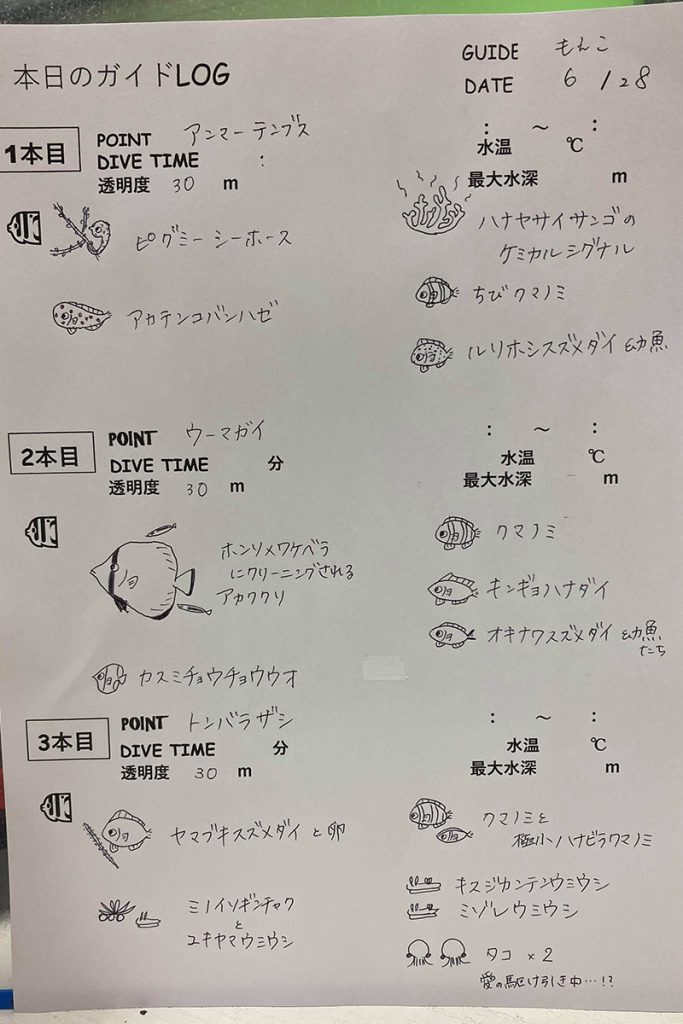 本日のガイドLOG
GUIDE もんこ
DATE 6 / 28
1本目
POINT アンマーテンブス
DIVE TIME :
透明度 30 m
: ～ :
水温 ℃
最大水深 m
ピグミーシーホース
アカテンコバンハゼ
ハナヤサイサンゴの
ケミカルシグナル
ちびクマノミ
ルリホシスズメダイ 幼魚
2本目
POINT ウーマガイ
DIVE TIME 分
透明度 30 m
: ～ :
水温 ℃
最大水深 m
ホンソメワケベラ
にクリーニングされる
アカククリ
カスミチョウチョウウオ
クマノミ
キンギョハナダイ
オキナワスズメダイ 幼魚
たち
3本目
POINT トンバラザシ
DIVE TIME 分
透明度 30 m
: ～ :
水温 ℃
最大水深 m
ヤマブキスズメダイ と 卵
ミノイソギンチャク
と
ユキヤマウミウシ
クマノミと
極小ハナビラクマノミ
キスジカンテンウミウシ
ミゾレウミウシ
タコ ×2
愛の駆け引き中…!?